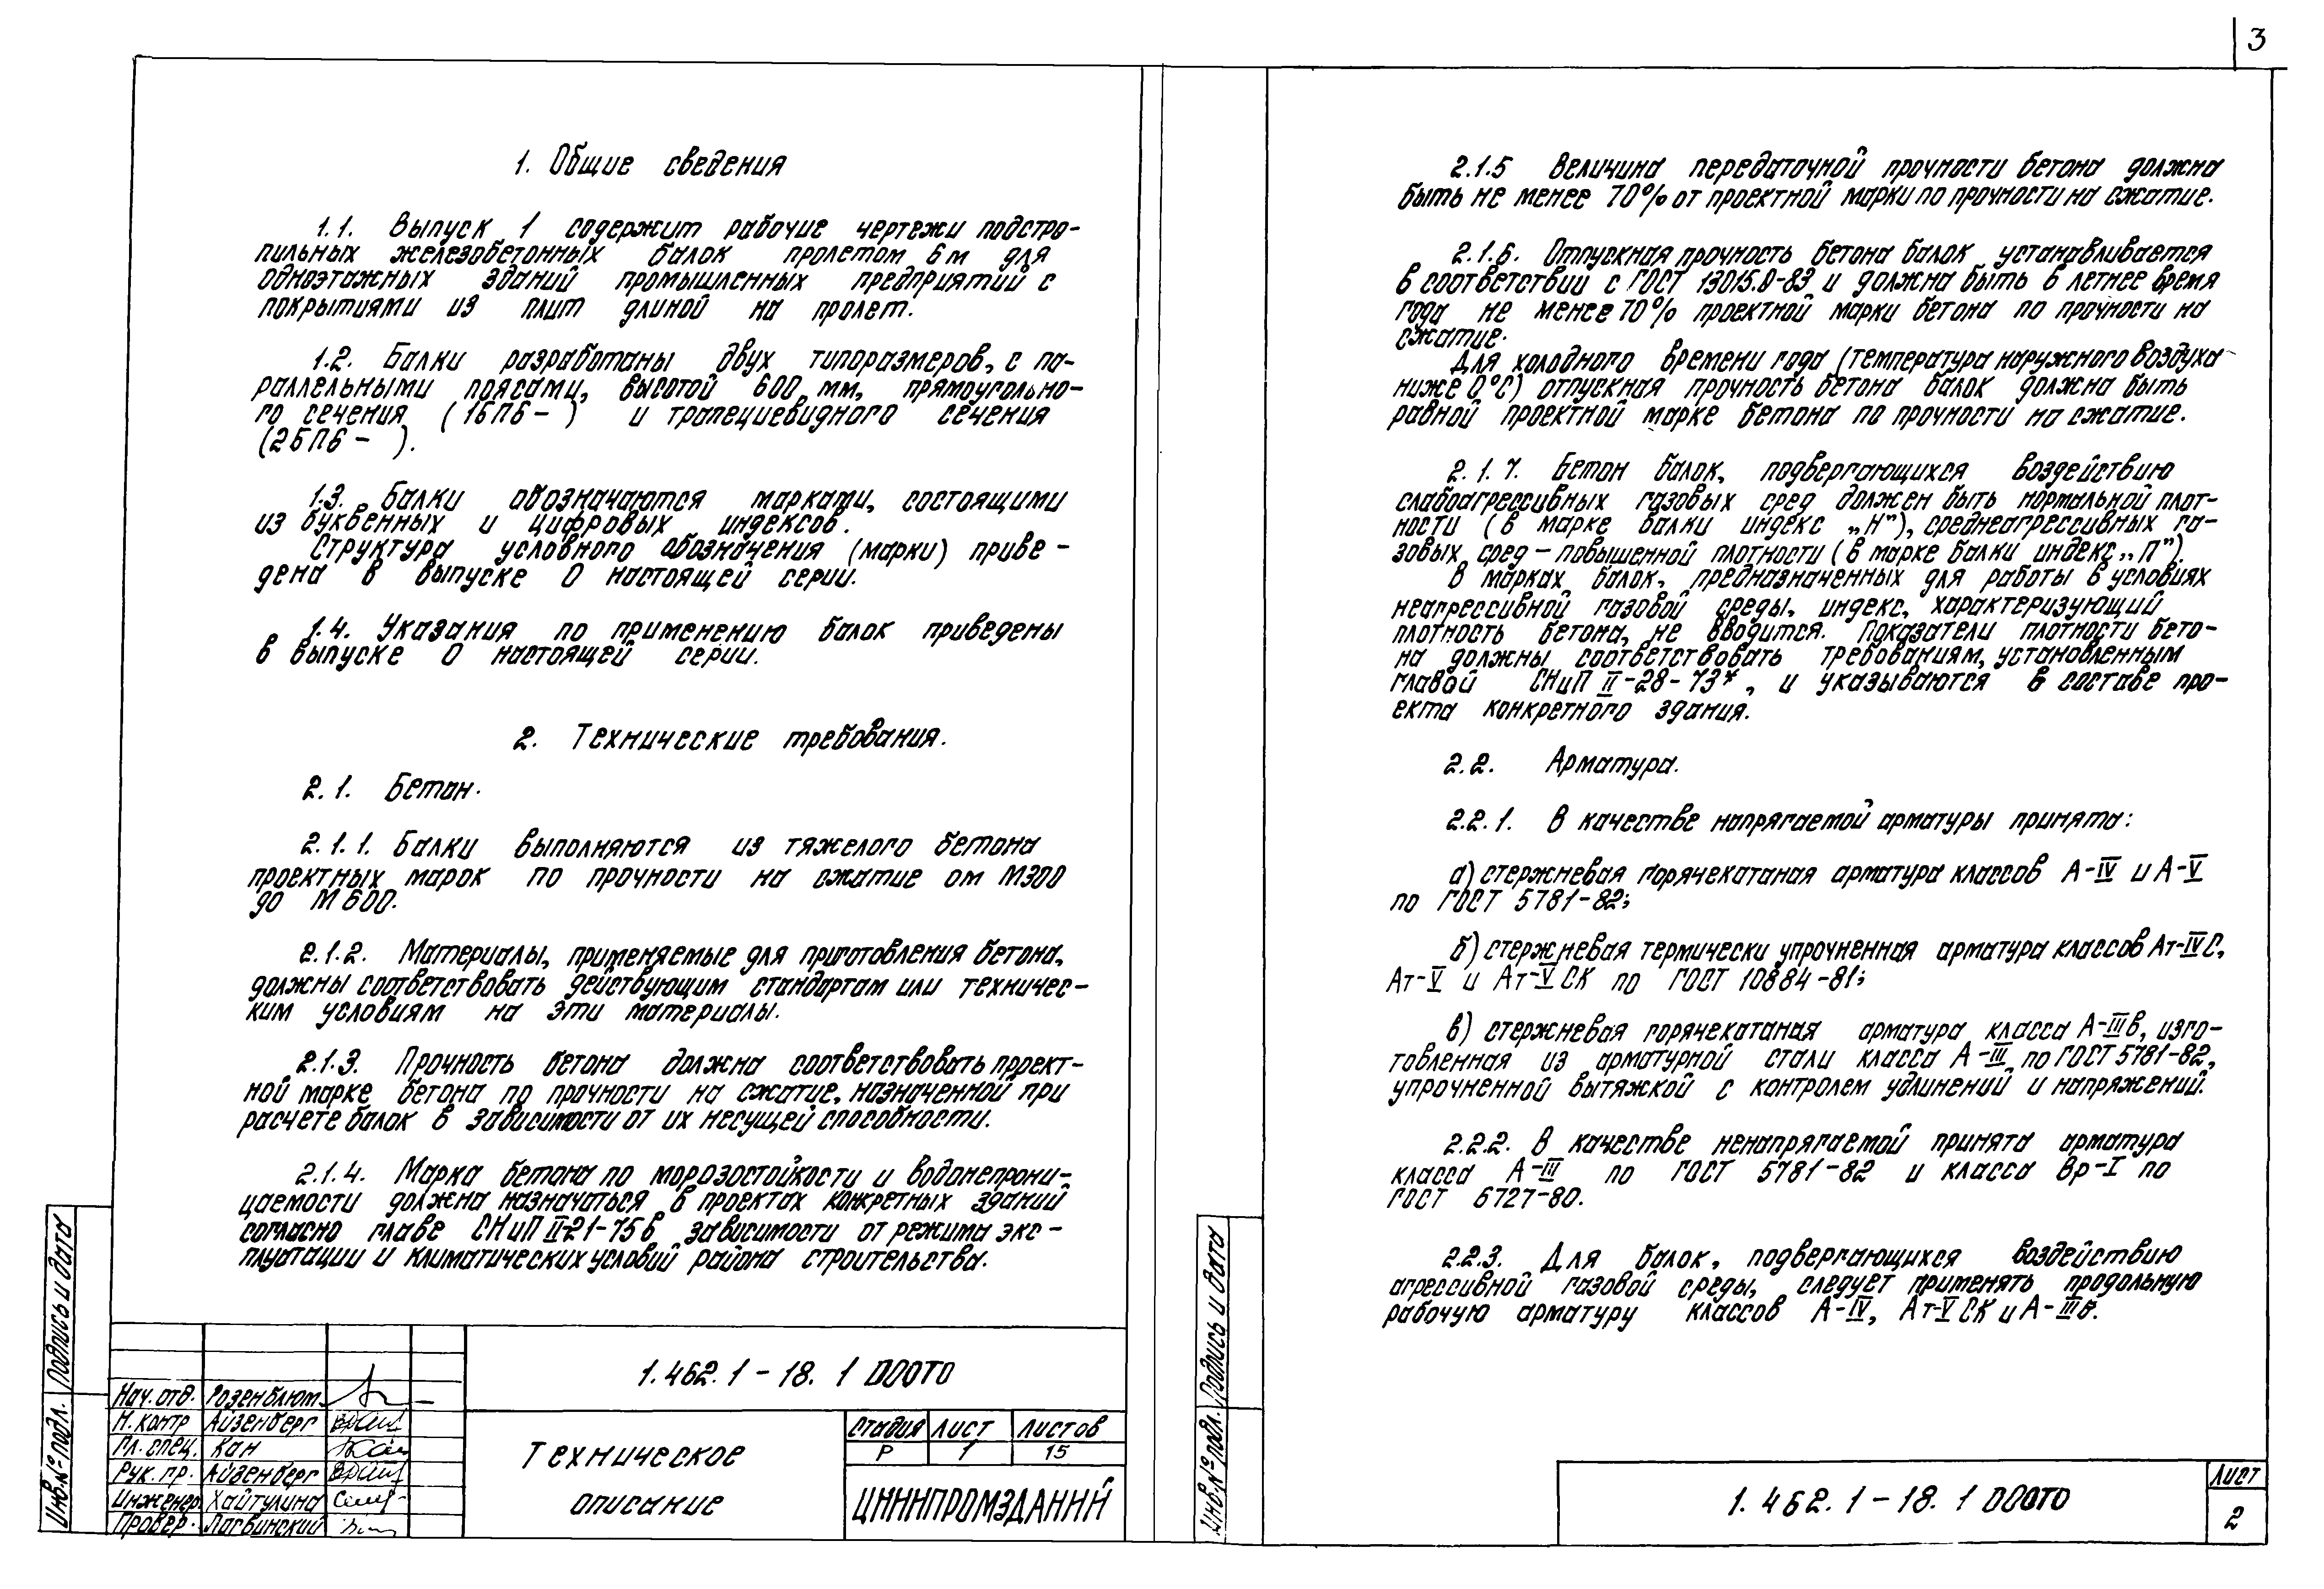 3
1. Общие сведения
1.1. Выпуск 1 содержит рабочие чертежи подстро-
пильных железобетонных балок пролетом 6м для
одноэтажных зданий промышленных предприятий с
покрытиями из плит длиной на пролет.
1.2. Балки разработаны двух типоразмеров, с па-
раллельными поясами, высотой 600 мм, прямоугольно-
го сечения (1БП6- ) и трапециевидного сечения
(2БП6- ).
1.3. Балки обозначаются марками, состоящими
из буквенных и цифровых индексов.
Структура условного обозначения (марки) приве-
дена в выпуске 0 настоящей серии.
1.4. Указания по применению балок приведены
в выпуске 0 настоящей серии.
2. Технические требования.
2.1. Бетон.
2.1.1. Балки выполняются из тяжелого бетона
проектных марок по прочности на сжатие от М300
до М600.
2.1.2. Материалы, применяемые для приготовления бетона,
должны соответствовать действующим стандартам или техничес-
ким условиям на эти материалы.
2.1.3. Прочность бетона должна соответствовать проект-
ной марке бетона по прочности на сжатие, назначенной при
расчете балок в зависимости от их несущей способности.
2.1.4. Марка бетона по морозостойкости и водонепрони-
цаемости должна назначаться в проектах конкретных зданий
согласно главе СНиП II-21-75 в зависимости от режима экс-
плуатации и климатических условий района строительства.
Подпись и дата
Инв.№ подл.
1.462.1-18. 1 D00TO
Нач. отд. Розенблют
Н. контр Айзенберг
Гл. спец. Кан
Рук. пр. Айзенберг
Инженер. Хайтулина
Провер. Логвинский
Техническое
описание
Стадия Лист Листов
Р 1 15
ЦНИИПРОМЗДАНИЙ
2.1.5 Величина передаточной прочности бетона должна
быть не менее 70% от проектной марки по прочности на сжатие.
2.1.6. Отпускная прочность бетона балок устанавливается
в соответствии с ГОСТ 13015.0-83 и должна быть в летнее время
года не менее 70% проектной марки бетона по прочности на
сжатие.
Для холодного времени года (температура наружного воздуха
ниже 0°С) отпускная прочность бетона балок должна быть
равной проектной марке бетона по прочности на сжатие.
2.1.7. Бетон балок, подвергающихся воздействию
слабоагрессивных газовых сред должен быть нормальной плот-
ности (в марке балки индекс „Н"), среднеагрессивных га-
зовых сред – повышенной плотности (в марке балки индекс „П").
В марках балок, предназначенных для работы в условиях
неагрессивной газовой среды, индекс, характеризующий
плотность бетона, не вводится. Показатели плотности бето-
на должны соответствовать требованиям, установленным
главой СНиП II-28-73*, и указываются в составе про-
екта конкретного здания.
2.2. Арматура.
2.2.1. В качестве напрягаемой арматуры принята:
а) стержневая горячекатаная арматура классов А-IV и А-V
по ГОСТ 5781-82;
б) стержневая термически упрочненная арматура классов Ат-IVС,
Ат-V и Ат-VСК по ГОСТ 10884-81;
в) стержневая горячекатаная арматура класса А-IIIв, изго-
товленная из арматурной стали класса А-III по ГОСТ 5781-82,
упрочненной вытяжкой с контролем удлинений и напряжений.
2.2.2. В качестве ненапрягаемой принята арматура
класса А-III по ГОСТ 5781-82 и класса Вр-I по
ГОСТ 6727-80.
2.2.3. Для балок, подвергающихся воздействию
агрессивной газовой среды, следует применять продольную
рабочую арматуру классов А-IV, Ат-VСК и А-IIIв.
Подпись и дата
Инв.№ подл.
1.462.1-18. 1 D00TO
Лист
2